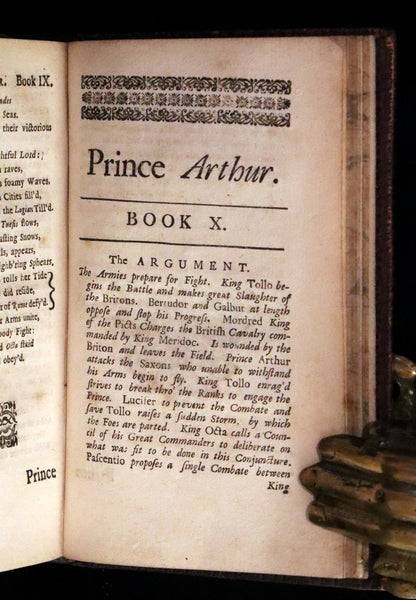 Book IX.
Seas.
their victorious
raves,
foamy Waves.
Cities fill'd,
the Legian Till'd.
flows,
Snows,
appears,
Sphears.
rolls her Tide
did reside,
of Rome defy'd.
Arms unite,
Fight:
Octa staid
obey'd.
Prince
Prince Arthur.
BOOK X.
The ARGUMENT.
The Armies prepare for Fight. King Tollo be-
gins the Battle and makes great Slaughter of
the Britons. Bertudor and Galbut at length
oppose and stop his Progress. Mordred King
of the Picts Charges the British Cavalry com-
manded by King Meridoc. Is wounded by the
Briton and leaves the Field. Prince Arthur
attacks the Saxons who unable to withstand
his Arms begin to fly. King Tollo enrag'd
strives to break thro' the Ranks to engage the
Prince. Lucifer to prevent the Combate and
save Tollo raises a sudden Storm, by which
the Foes are parted. King Octa calls a Coun-
cil of his Great Commanders to deliberate on
what was fit to be done in this Conjuncture.
Pascentio proposes a single Combate between
King